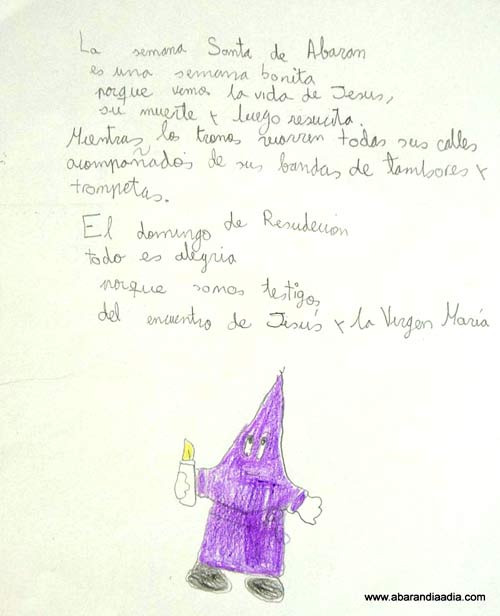 La semana Santa de Abaran
es una semana bonita
porque vemos la vida de Jesus,
su muerte y luego resucita.
Mientras los tronos recorren todas sus calles
acompañados de sus bandas de tambores y
trompetas.
El domingo de Resudeción
todo es alegria
porque somos testigos
del encuentro de Jesús y la Virgen María
www.abarandiaadia.com